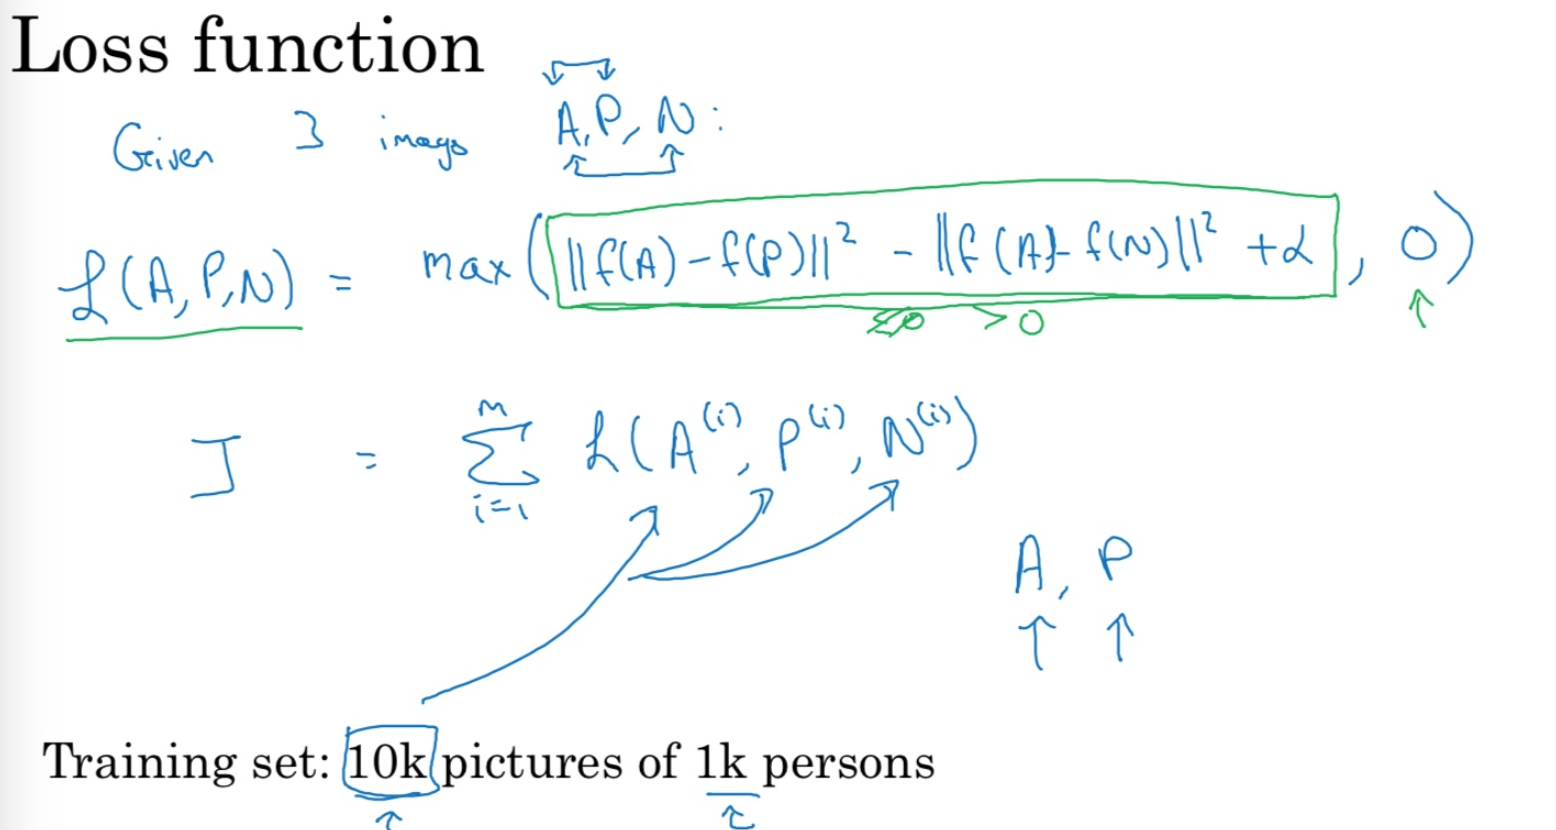 Loss function
Given 3 images A, P, N:
ℒ(A, P, N) = max(‖f(A) - f(P)‖² - ‖f(A) - f(N)‖² + α, 0)
> 0
J = Σ_{i=1}^{m} ℒ(A⁽ⁱ⁾, P⁽ⁱ⁾, N⁽ⁱ⁾)
A, P
Training set: 10k pictures of 1k persons